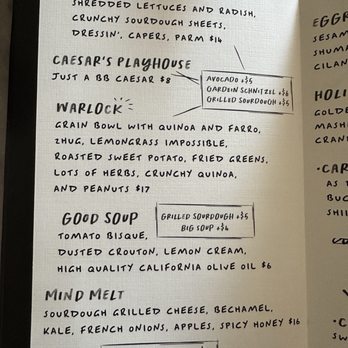 SHREDDED LETTUCES AND RADISH,
CRUNCHY SOURDOUGH SHEETS,
DRESSIN', CAPERS, PARM $14
CAESAR'S PLAYHOUSE
JUST A BB CAESAR $8
AVOCADO +$5
GARDEIN SCHNITZEL +$6
GRILLED SOURDOUGH +$5
WARLOCK
GRAIN BOWL WITH QUINOA AND FARRO,
ZHUG, LEMONGRASS IMPOSSIBLE,
ROASTED SWEET POTATO, FRIED GREENS,
LOTS OF HERBS, CRUNCHY QUINOA,
AND PEANUTS $17
GOOD SOUP
GRILLED SOURDOUGH +$5
BIG SOUP +$4
TOMATO BISQUE,
DUSTED CROUTON, LEMON CREAM,
HIGH QUALITY CALIFORNIA OLIVE OIL $6
MIND MELT
SOURDOUGH GRILLED CHEESE, BECHAMEL,
KALE, FRENCH ONIONS, APPLES, SPICY HONEY $16
EGGR
SESAM
SHUMA
CILAN
HOLI
GOLDE
MASH
CRAN
CAR
AS T
BUC
SHII